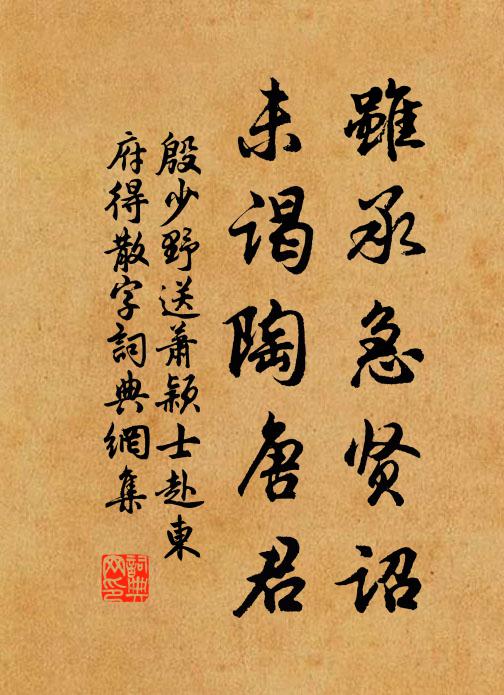 雖承急贤诏
未谒陶唐君
殷少野送萧颖士赴東
府得散字詞典網集
詞典
网印